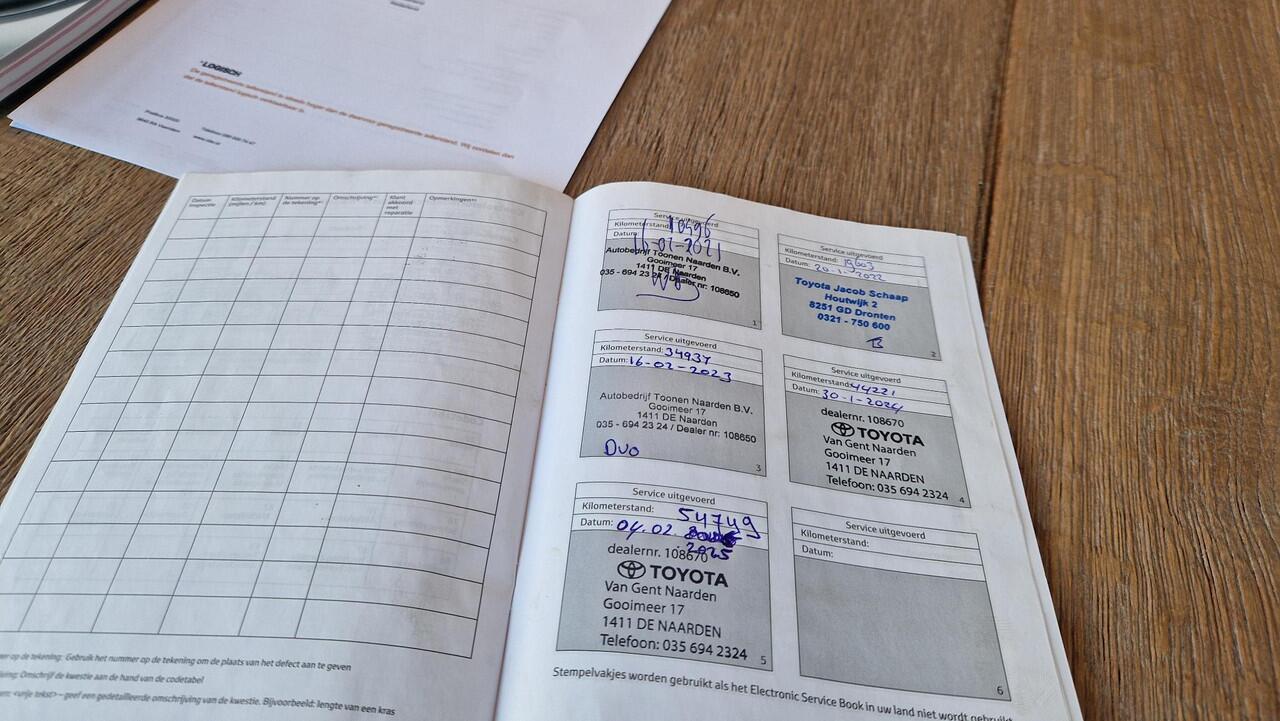 Nederland
*LOGISCH
Datum inspectie
Kilometerstand (mijlen / km)
Nummer op de tekening*¹
Omschrijving*²
Klant akkoord met reparatie
Opmerkingen*³
er op de tekening: Gebruik het nummer op de tekening om de plaats van het defect aan te geven
ving: Omschrijf de kwestie aan de hand van de codetabel
en: <vrije tekst> – geef een gedetailleerde omschrijving van de kwestie. Bijvoorbeeld: lengte van een kras
Service uitgevoerd
Kilometerstand: 10496
Datum: 11-01-2021
Autobedrijf Toonen Naarden B.V.
Gooimeer 17
1411 DE Naarden
035 - 694 23 24 / Dealer nr: 108650
1
Service uitgevoerd
Kilometerstand: 19603
Datum: 20-1-2022
Toyota Jacob Schaap
Houtwijk 2
8251 GD Dronten
0321 - 750 600
2
Service uitgevoerd
Kilometerstand: 34937
Datum: 16-02-2023
Autobedrijf Toonen Naarden B.V.
Gooimeer 17
1411 DE Naarden
035 - 694 23 24 / Dealer nr: 108650
Duo
3
Service uitgevoerd
Kilometerstand: 44221
Datum: 30-1-2024
dealernr. 108670
TOYOTA
Van Gent Naarden
Gooimeer 17
1411 DE NAARDEN
Telefoon: 035 694 2324
4
Service uitgevoerd
Kilometerstand: 54749
Datum: 04.02.
2025
dealernr. 108670
TOYOTA
Van Gent Naarden
Gooimeer 17
1411 DE NAARDEN
Telefoon: 035 694 2324
5
Service uitgevoerd
Kilometerstand:
Datum:
6
Stempelvakjes worden gebruikt als het Electronic Service Book in uw land niet wordt gebruikt